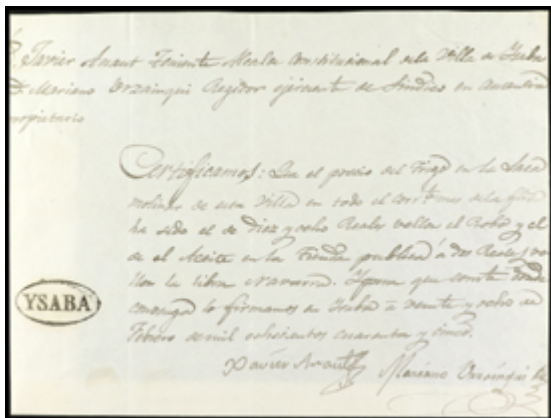 D. Javier Anaut Teniente Alcalde Constitucional de la Villa de Isaba
D. Mariano Orzainqui Regidor ejerciente de Sindico en ausencia
propietario
Certificamos: Que el precio del Trigo en la
molinar de esta Villa en todo el corrte mes de la fha
ha sido el de diez y ocho Reales vellon el Robo y el
de el Aceite en la Tienda publica á dos Reales ve
llon la libra Navarra. Y para que conste donde
convenga lo firmamos en Isaba a veinte y ocho de
Febrero de mil ochocientos cuarenta y cinco.
YSABA
Xavier Anaut Mariano Orzainqui